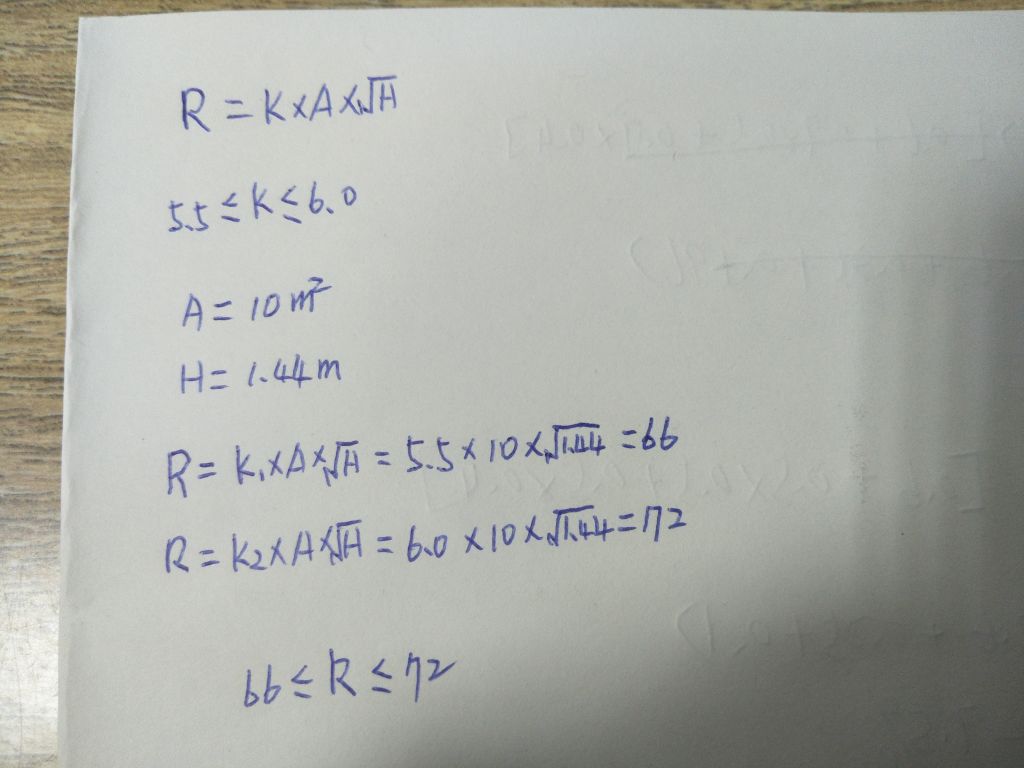 R = K×A×√H
5.5 ≤ K ≤ 6.0
A = 10 m²
H = 1.44m
R = K₁×A×√H = 5.5×10×√1.44 = 66
R = K₂×A×√H = 6.0×10×√1.44 = 72
66 ≤ R ≤ 72